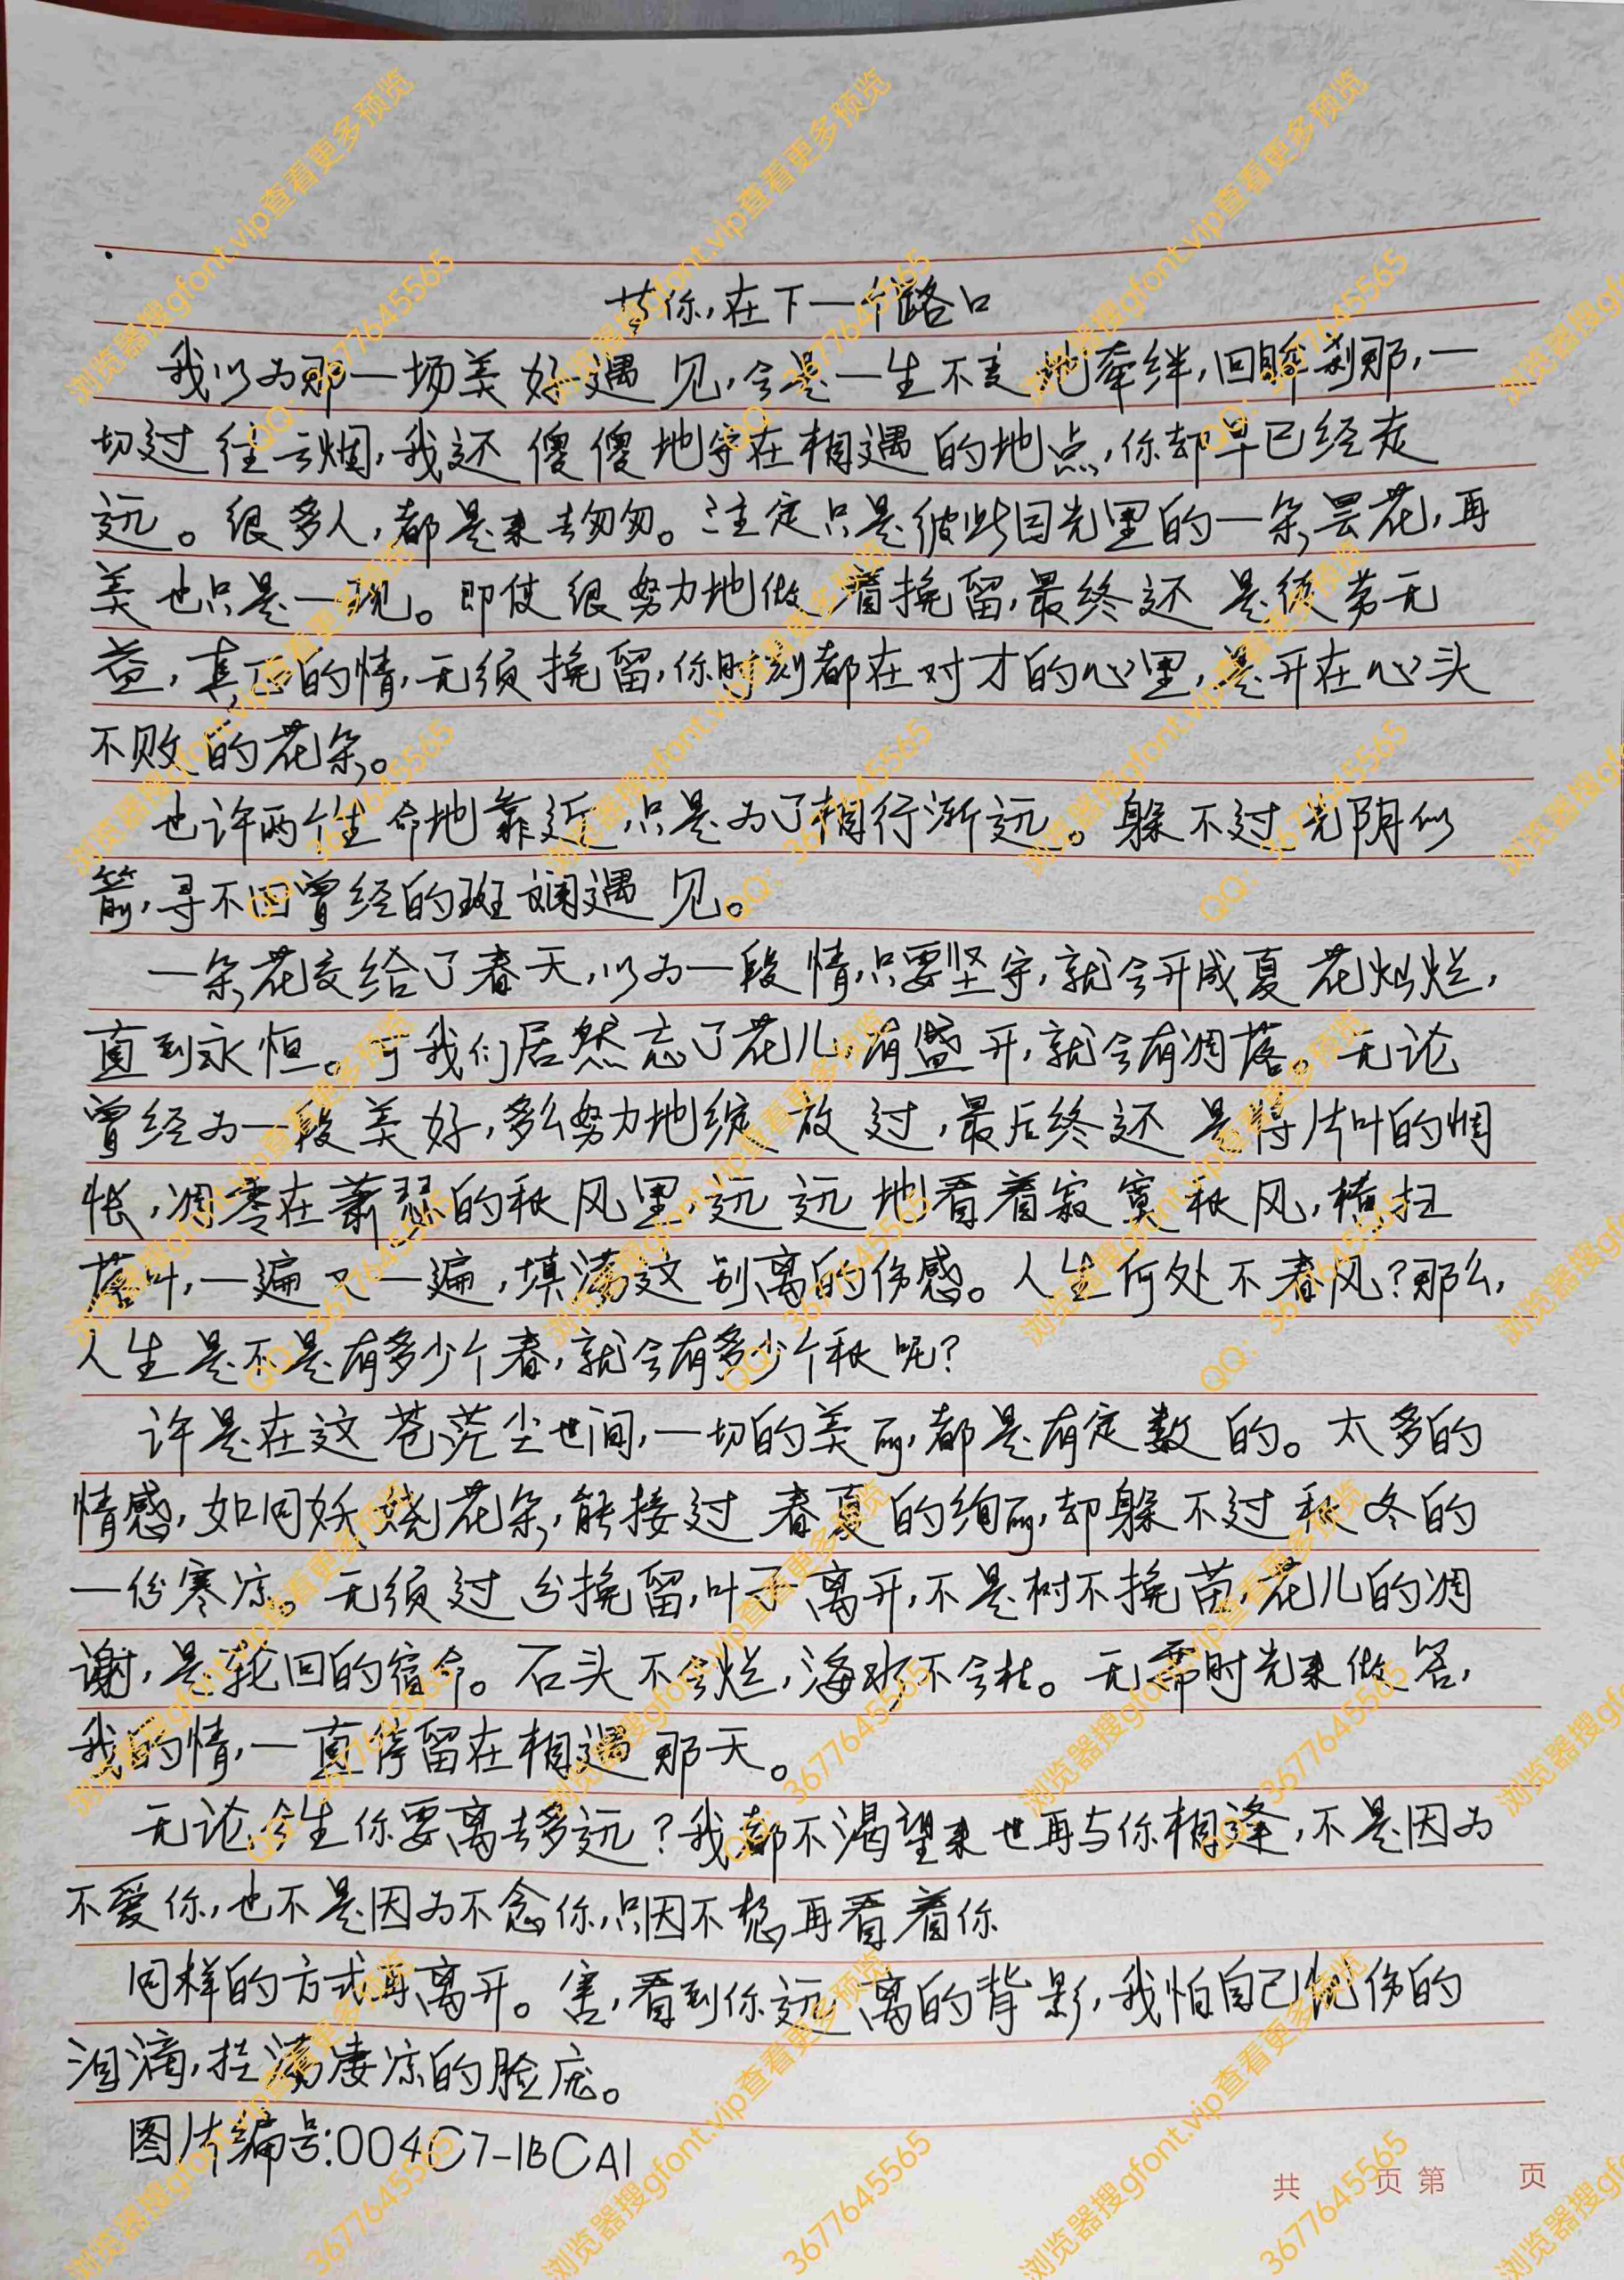 等你,在下一个路口
我以为那一场美好遇见,会是一生不变地牵绊,回眸刹那,一
切过往云烟,我还傻傻地守在相遇的地点,你却早已经走
远。很多人,都是来去匆匆。注定只是彼此目光里的一朵昙花,再
美也只是一现。即使很努力地做着挽留,最终还是徒劳无
益,真正的情,无须挽留,你时刻都在对才的心里,是开在心头
不败的花朵。
也许两个生命地靠近,只是为了相行渐远。躲不过光阴似
箭,寻不回曾经的斑斓遇见。
一朵花交给了春天,以为一段情只要坚守,就会开成夏花灿烂,
直到永恒。可我们居然忘了花儿,有盛开,就会有凋落。无论
曾经为一段美好,多么努力地绽放过,最后终还是得片叶的惆
怅,凋零在萧瑟的秋风里,远远地看着寂寞秋风,横扫
落叶,一遍又一遍,填满这别离的伤感。人生何处不春风?那么,
人生是不是有多少个春,就会有多少个秋呢?
许是在这苍茫尘世间,一切的美丽,都是有定数的。太多的
情感,如同妖娆花朵,能接过春夏的绚丽,却躲不过秋冬的
一份寒凉。无须过分挽留,叶子离开,不是树不挽苗,花儿的凋
谢,是轮回的宿命。石头不会烂,海水不会枯。无需时光来做答,
我的情,一直停留在相遇那天。
无论今生你要离去多远?我都不渴望来世再与你相逢,不是因为
不爱你,也不是因为不念你,只因不想再看着你
同样的方式再离开。害,看到你远离的背影,我怕自己忧伤的
泪滴,挂满凄凉的脸庞。
图片编号:004C7-1BCA1
共 页 第 页
浏览器搜gfont.vip查看更多预览
QQ: 3677645565